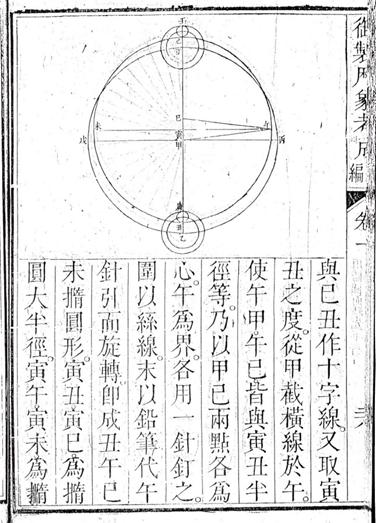 御製曆象考成
編
卷一
與己丑作十字線。又取寅
丑之度。從甲截橫線於午。
使午甲午巳皆與寅丑半
徑等。乃以甲巳兩點各為
心。午為界。各用一針釘之。
圍以絲線。末以鉛筆代午
針引而旋轉。即成丑午巳
未撱圓形。寅丑寅巳為撱
圓大半徑。寅午寅未為撱
壬
巳
寅
甲
未
戌
乙